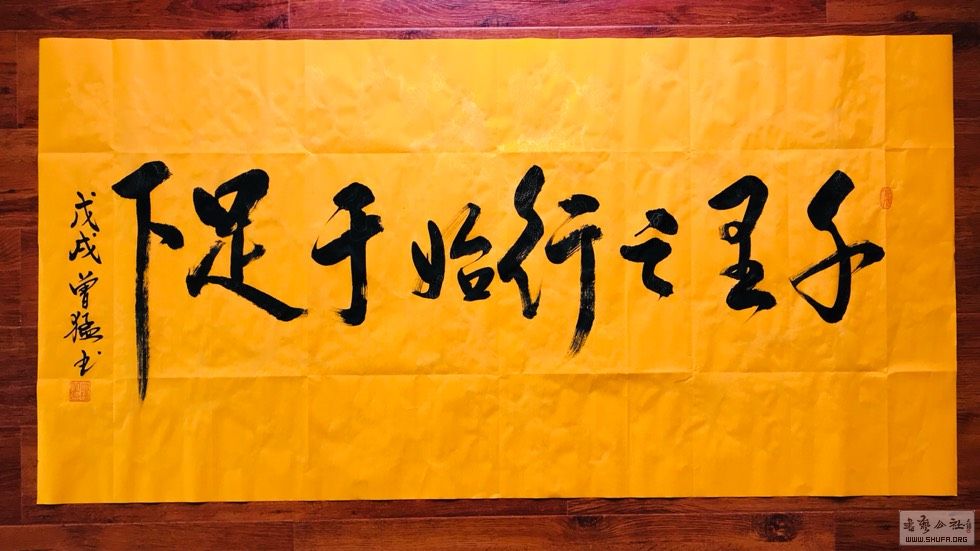 千里之行始于足下
戊戌曾猛书
書藝公社
WWW.SHUFA.ORG